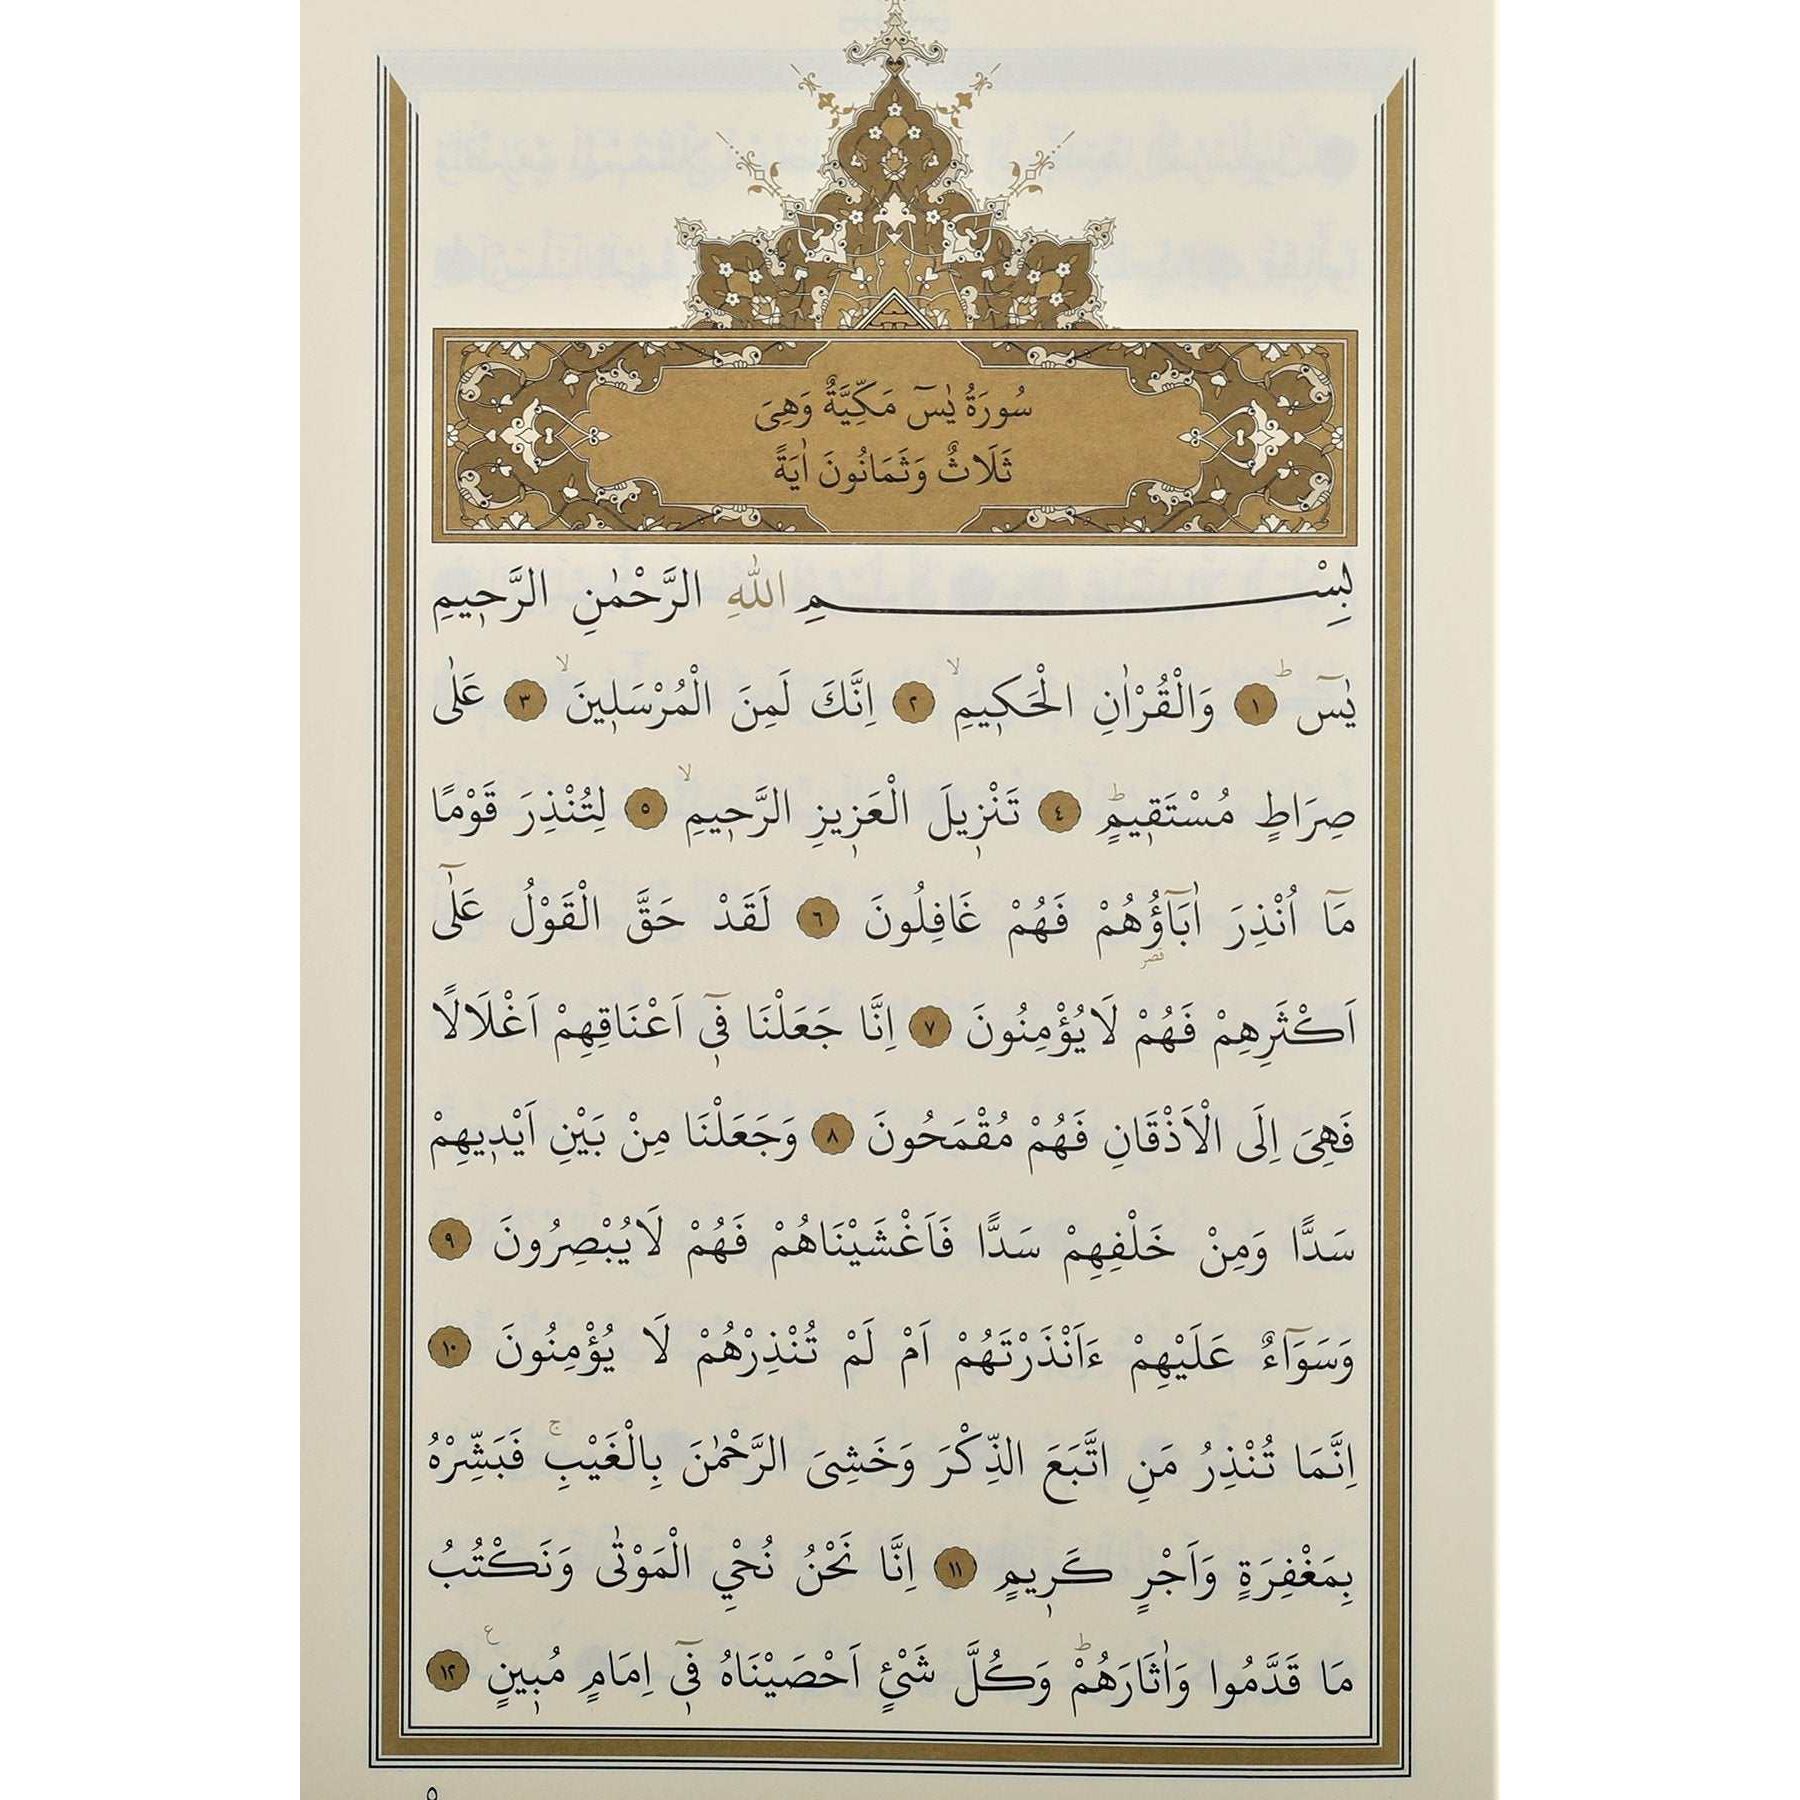 سُورَةُ يٰسٓ مَكِّيَّةٌ وَهِىَ
ثَلَاثٌ وَثَمَانُونَ اٰيَةً
بِسْمِ اللّٰهِ الرَّحْمٰنِ الرَّحٖيمِ
يٰسٓ ۚط ﴿١﴾ وَالْقُرْاٰنِ الْحَكٖيمِۙ ﴿٢﴾ اِنَّكَ لَمِنَ الْمُرْسَلٖينَۙ ﴿٣﴾ عَلٰى
صِرَاطٍ مُسْتَقٖيمٍؕ ﴿٤﴾ تَنْزٖيلَ الْعَزٖيزِ الرَّحٖيمِۙ ﴿٥﴾ لِتُنْذِرَ قَوْمًا
مَٓا اُنْذِرَ اٰبَٓاؤُ۬هُمْ فَهُمْ غَافِلُونَ ﴿٦﴾ لَقَدْ حَقَّ الْقَوْلُ عَلٰٓى
قصر
اَكْثَرِهِمْ فَهُمْ لَايُؤْمِنُونَ ﴿٧﴾ اِنَّا جَعَلْنَا فٖٓى اَعْنَاقِهِمْ اَغْلَالًا
فَهِىَ اِلَى الْاَذْقَانِ فَهُمْ مُقْمَحُونَ ﴿٨﴾ وَجَعَلْنَا مِنْ بَيْنِ اَيْدٖيهِمْ
سَدًّا وَمِنْ خَلْفِهِمْ سَدًّا فَاَغْشَيْنَاهُمْ فَهُمْ لَايُبْصِرُونَ ﴿٩﴾
وَسَوَٓاءٌ عَلَيْهِمْ ءَاَنْذَرْتَهُمْ اَمْ لَمْ تُنْذِرْهُمْ لَا يُؤْمِنُونَ ﴿١٠﴾
اِنَّمَا تُنْذِرُ مَنِ اتَّبَعَ الذِّكْرَ وَخَشِىَ الرَّحْمٰنَ بِالْغَيْبِۚ فَبَشِّرْهُ
بِمَغْفِرَةٍ وَاَجْرٍ كَرٖيمٍ ﴿١١﴾ اِنَّا نَحْنُ نُحْيِ الْمَوْتٰى وَنَكْتُبُ
مَا قَدَّمُوا وَاٰثَارَهُمْؕ وَكُلَّ شَىْءٍ اَحْصَيْنَاهُ فٖٓى اِمَامٍ مُبٖينٍ ع ﴿١٢﴾